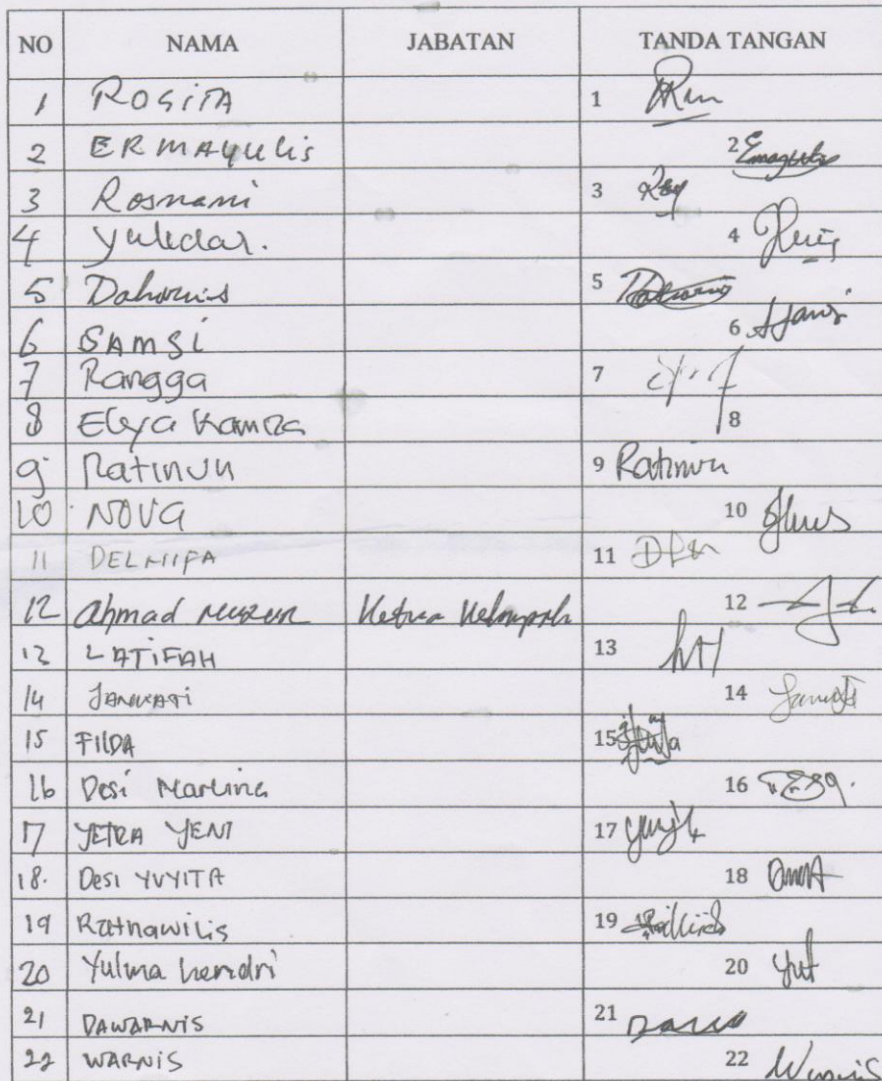 NO NAMA JABATAN TANDA TANGAN
1 ROSITA 1
2 ERMAYULis 2
3 Rosnani 3
4 Yulidar. 4
5 Daharnis 5
6 SAMSi 6
7 Rangga 7
8 Elya 8
9 Ratinun 9 Ratinun
10 NOVA 10
11 DELNIFA 11
12 Ahmad Ketua Kelompok 12
13 LATIFAH 13
14 JANWATi 14
15 FILDA 15
16 Desi Marlina 16
17 YETRA YENI 17
18. Desi YVYITA 18
19 Ratnawilis 19
20 Yulma hendri 20
21 DAWARNIS 21
22 WARNIS 22